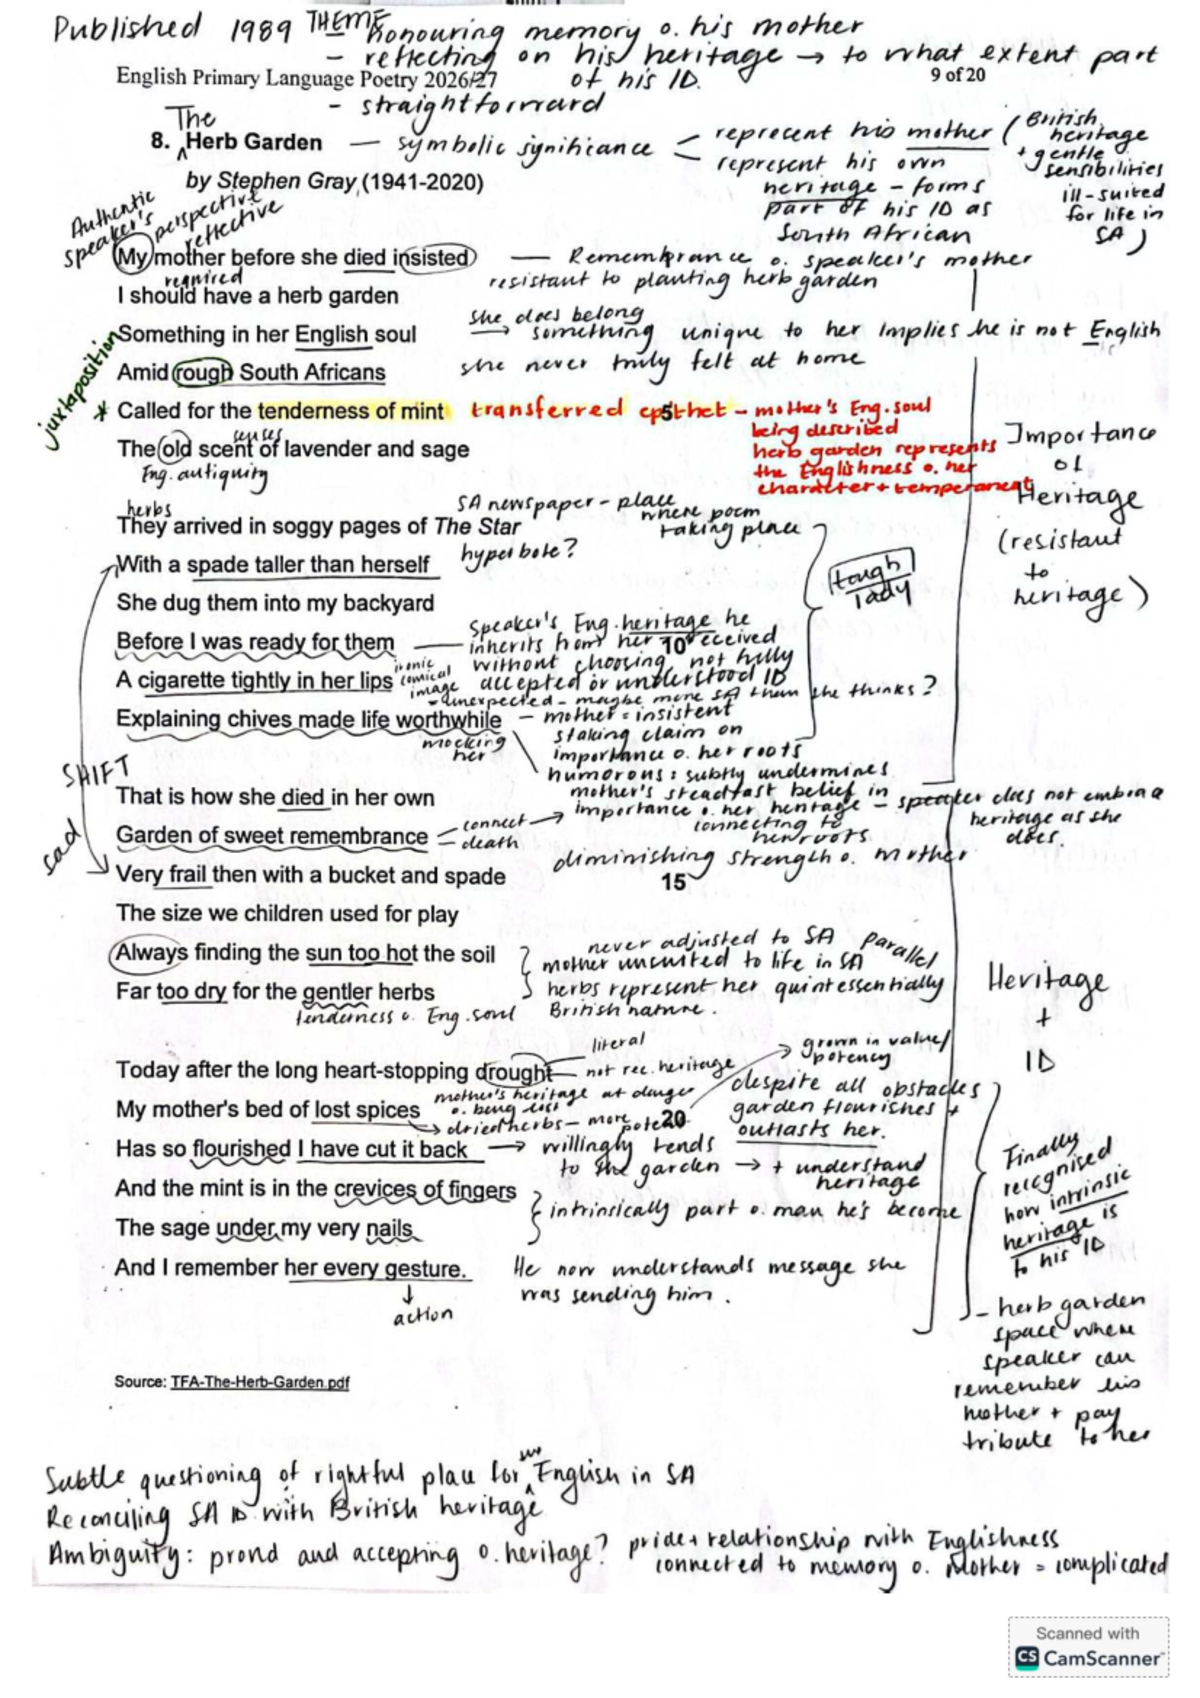 Published 1989 THEME Honouring memory o. his mother
- reflecting on his heritage → to what extent part
of his ID.
English Primary Language Poetry 2026/27
9 of 20
- straightforward
The
8. Herb Garden — symbolic significance
represent his mother (British heritage + gentle sensibilities ill-suited for life in SA)
represent his own heritage - forms part of his ID as South African
by Stephen Gray (1941-2020)
Authentic speaker's perspective reflective
My mother before she died insisted — Remembrance o. speaker's mother
required
resistant to planting herb garden
I should have a herb garden
she does belong
Something in her English soul → something unique to her implies he is not English
juxtaposition
Amid rough South Africans she never truly felt at home
* Called for the tenderness of mint 5 transferred epithet - mother's Eng. soul being described
herb garden represents the Englishness o. her character + temperament
senses
The old scent of lavender and sage
Eng. antiquity
Importance of Heritage (resistant to heritage)
herbs
They arrived in soggy pages of The Star SA newspaper - place where poem taking place
With a spade taller than herself hyperbole?
tough lady
She dug them into my backyard
Before I was ready for them 10 — speaker's Eng. heritage he inherits from her received without choosing, not fully accepted or understood ID
A cigarette tightly in her lips ironic comical image
- unexpected - maybe more SA than she thinks?
Explaining chives made life worthwhile — mother = insistent staking claim on importance o. her roots
mocking her
humorous: subtly undermines mother's steadfast belief in importance o. her heritage - speaker does not embrace heritage as she does.
SHIFT
sad
That is how she died in her own
Garden of sweet remembrance — connect → connecting to her roots
— death
diminishing strength o. mother
Very frail then with a bucket and spade 15
The size we children used for play
Always finding the sun too hot the soil never adjusted to SA Parallel
mother unsuited to life in SA
Far too dry for the gentler herbs herbs represent her quintessentially British nature.
tenderness o. Eng. soul
Heritage + ID
Today after the long heart-stopping drought literal
not rec. heritage
mother's heritage at danger o. being lost
My mother's bed of lost spices 20
→ dried herbs - more potent
→ grown in value/potency
despite all obstacles garden flourishes + outlasts her.
Has so flourished I have cut it back → willingly tends to the garden → + understand heritage
And the mint is in the crevices of fingers
intrinsically part o. man he's become
The sage under my very nails
And I remember her every gesture. He now understands message she was sending him.
↓
action
Finally recognised how intrinsic heritage is to his ID
- herb garden space where speaker can remember his mother + pay tribute to her
Source: TFA-The-Herb-Garden.pdf
Subtle questioning of rightful place for English in SA
Reconciling SA ID with British heritage
Ambiguity: proud and accepting o. heritage? pride + relationship with Englishness
connected to memory o. Mother = complicated
Scanned with
CS CamScanner